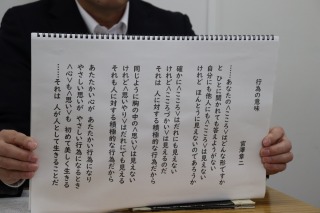 行為の意味
宮澤章二
……あなたの〈こころ〉はどんな形ですか
と ひとに聞かれても答えようがない
自分にも他人にも〈こころ〉は見えない
けれど ほんとうに見えないのであろうか
確かに〈こころ〉はだれにも見えない
けれど〈こころづかい〉は見えるのだ
それは 人に対する積極的な行為だから
同じように胸の中の〈思い〉は見えない
けれど〈思いやり〉はだれにでも見える
それも人に対する積極的な行為だから
あたたかい心が あたたかい行為になり
やさしい思いが やさしい行為になるとき
〈心〉も〈思い〉も 初めて美しく生きる
……それは 人が人として生きることだ